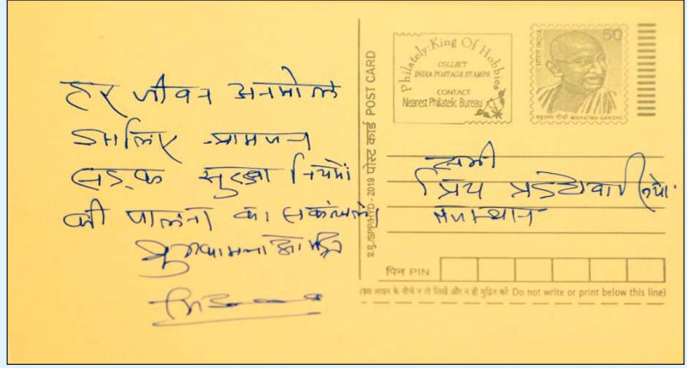 हर जीवन अनमोल
इसलिए आमजन
सड़क सुरक्षा नियमों
की पालना का संकल्प ले।
शुभकामनाओं सहित
Philately: King Of Hobbies
COLLECT
INDIA POSTAGE STAMPS
CONTACT
Nearest Philatelic Bureau
भारत INDIA
50
महात्मा गांधी MAHATMA GANDHI
2019 पोस्ट कार्ड POST CARD
सभी
प्रिय प्रदेशवासियो
राजस्थान
पिन PIN
(इस लाइन के नीचे न तो लिखें और न ही मुद्रित करें Do not write or print below this line)